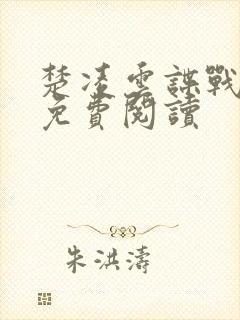 楚凌雲諜戰
免費閱讀
朱洪濤